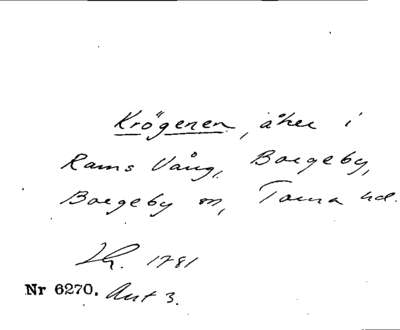 Krögenen, åker i
Rams Vång, Borgeby,
Borgeby sn, Torna hd.
LR. 1781
Nr 6270. Akt 3.